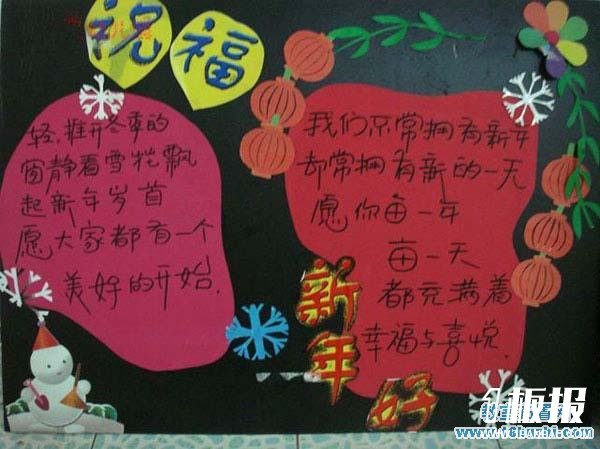 祝福
轻,推开冬季的
窗静看雪花飘
起新年岁首
愿大家都有一个
美好的开始.
我们不常拥有新年
却常拥有新的一天
愿你每一年
每一天
都充满着
幸福与喜悦.
新年好
板报